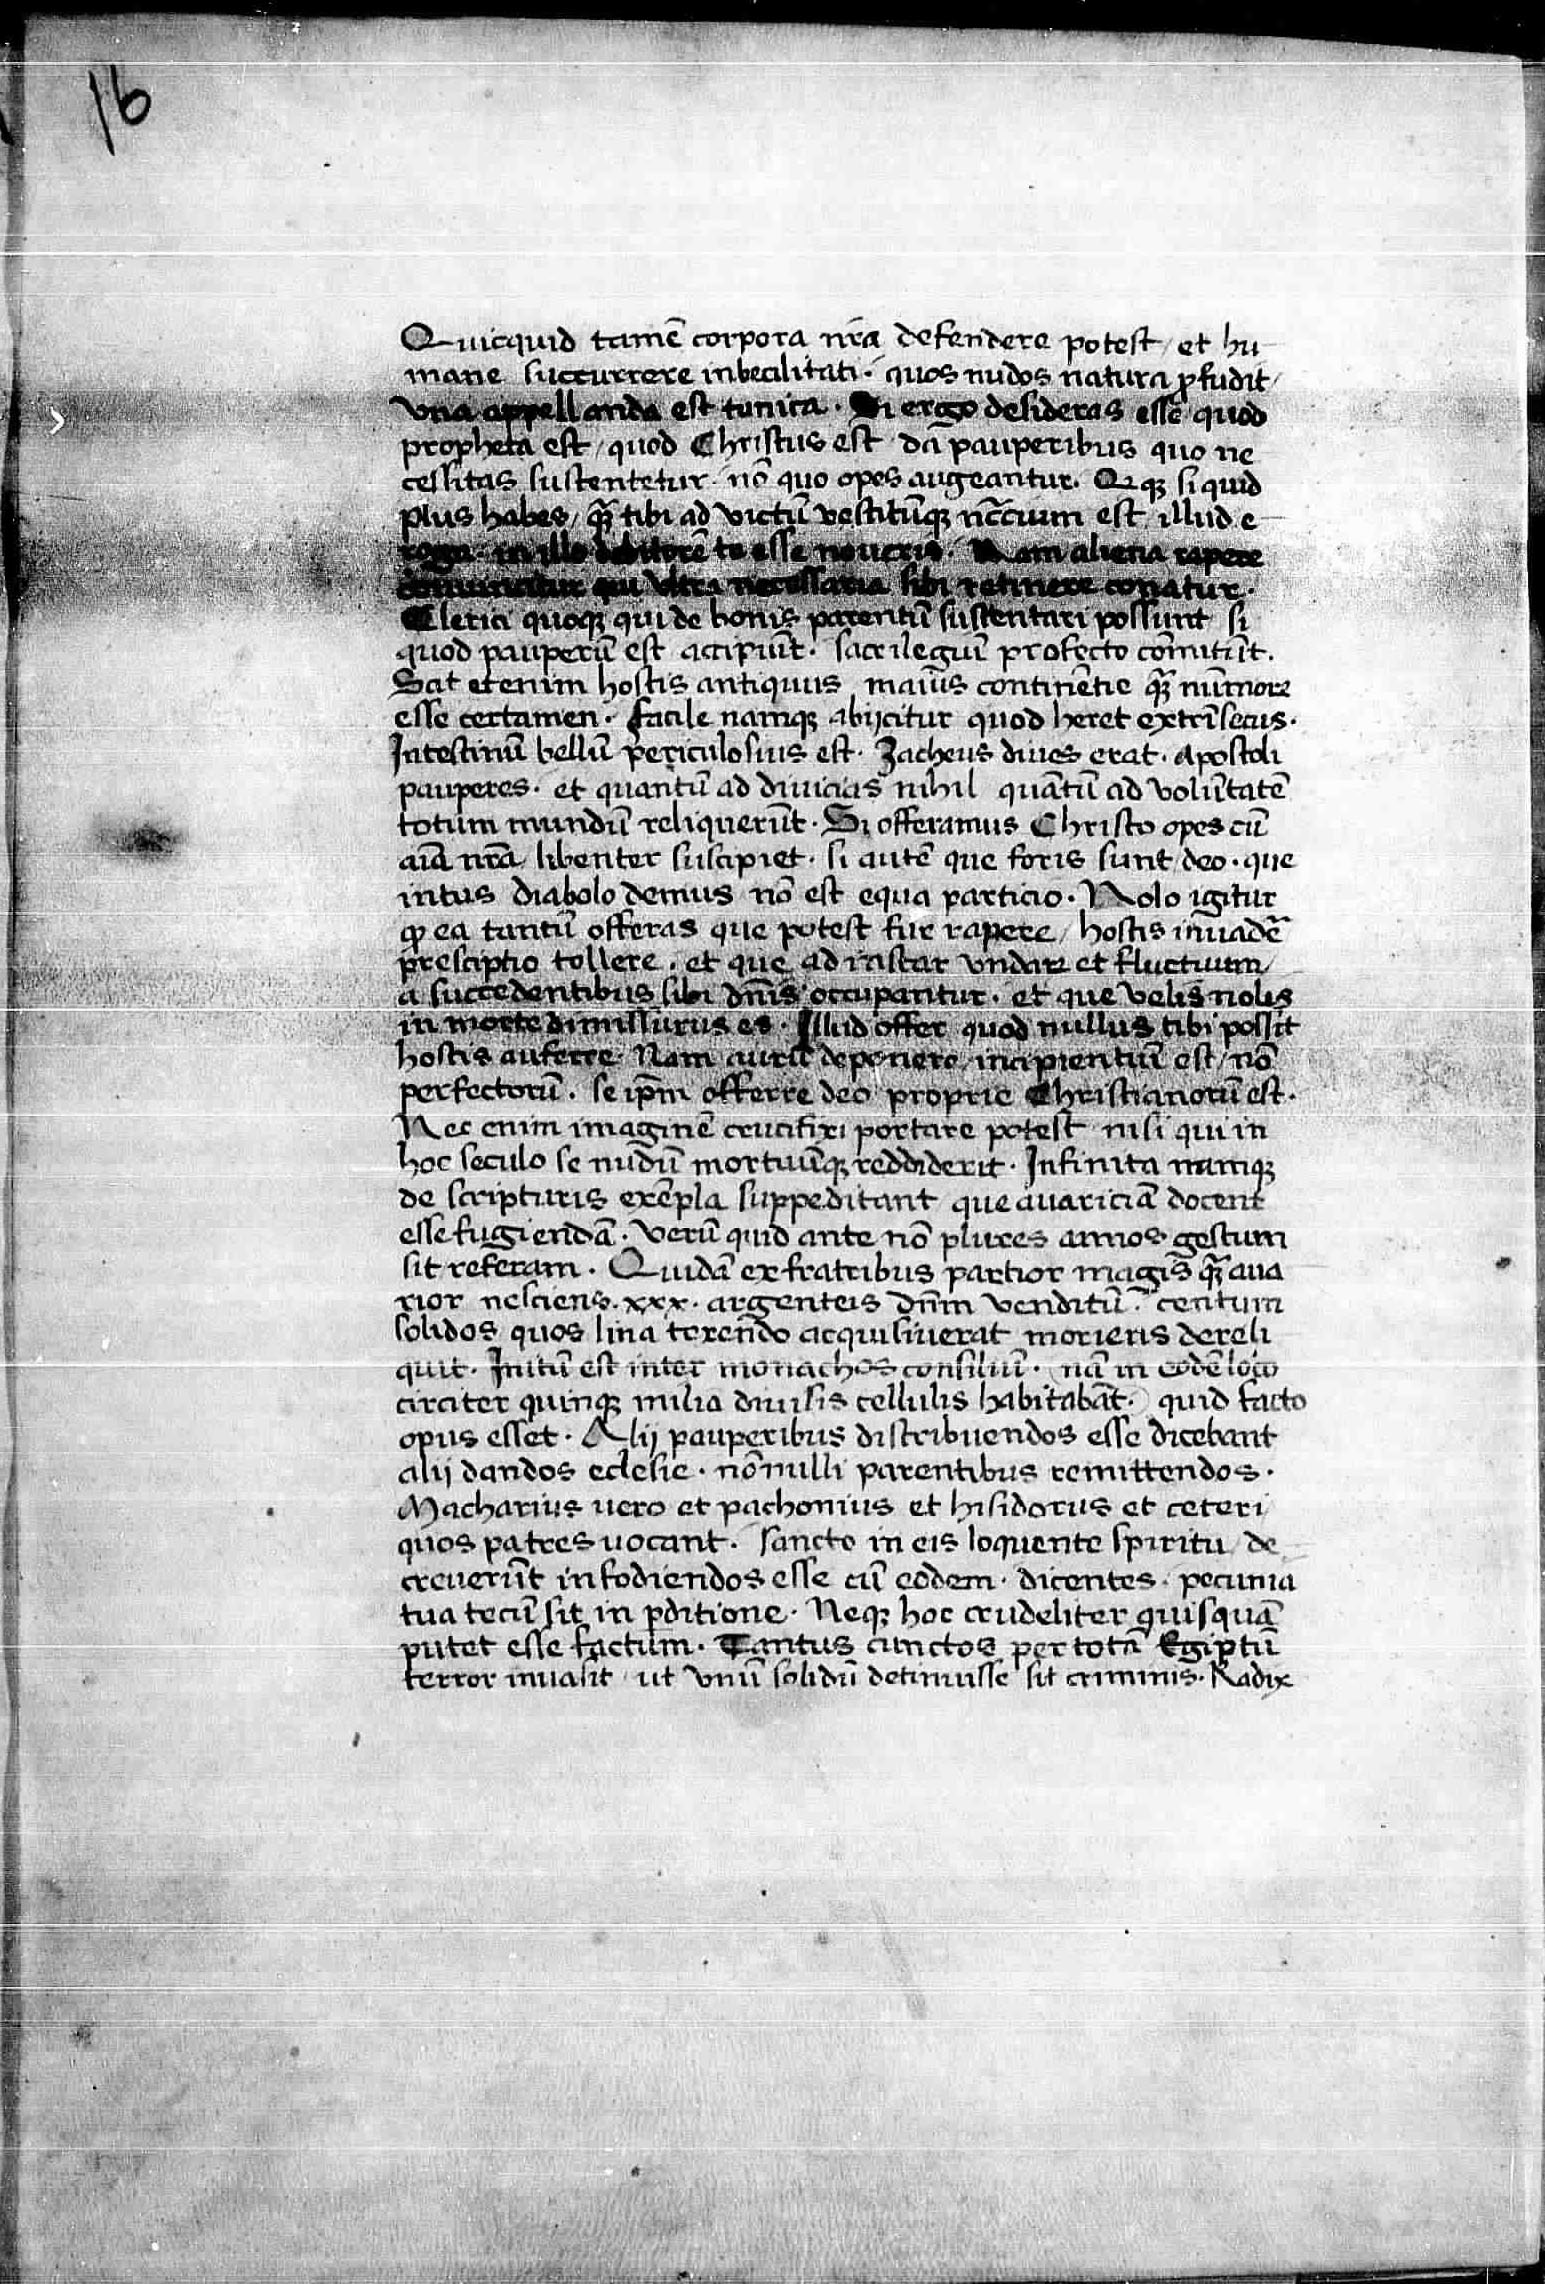 16
Quicquid tamē corpora nr̄a defendere potest / et hu
mane succurrere inbecilitati · quos nudos natura ꝓfudit /
vna appellanda est tunica · Si ergo desideras esse quod
propheta est / quod Christus est · dā pauperibus quo ne
cessitas sustentetur · nō quo opes augeantur · Qꝗ si quid
plus habes / qꝫ̄ tibi ad victū vestitūqꝫ nc̄c̄ium est / illud e
roga · in illo debitorē te esse noueris · Nam aliena rapere
conuincitur qui vltra necessaria sibi retinere conatur ·
Clerici quoqꝫ qui de bonis parentū sustentari possunt si
quod pauperū est accipiūt · sacrilegiū profecto cōmitūt ·
Sat etenim hostis antiquus maius continētie qꝫ̄ nūmoꝝ
esse certamen · facile namqꝫ abijcitur quod heret extrīsecus ·
Intestinū bellū periculosius est · Zacheus diues erat · Apostoli
pauperes · et quantū ad diuicias nihil quātū ad volūtatē
totum mundū reliquerūt · Si offeramus Christo opes cū
aīa nr̄a / libenter suscipiet · si autē que foris sunt / deo · que
intus diabolo demus nō est equa particio · Nolo igitur
ꝙ ea tantū offeras que potest fur rapere / hostis inuadē
presciptio tollere · et que ad instar vndaꝝ et fluctuum /
a succedentibus sibi dn̄is occupantur · et que velis nolis
in morte dimissurus es · Illud offer quod nullus tibi possit
hostis auferre · Nam aurū deponere / incipientiū est / nō
perfectorū · se ip̄m offerre deo proprie Christianorū est ·
Nec enim imaginē crucifixi portare potest nisi qui in
hoc seculo se nudū mortuūqꝫ reddiderit · Infinita namqꝫ
de scripturis exēpla suppeditant que auariciā docent
esse fugiendā · verū quid ante nō plures annos gestum
sit referam · Quidā ex fratribus partior magis qꝫ̄ aua
rior nesciens · xxx · argenteis dn̄m venditū · centum
solidos quos lina texendo acquisiuerat moriens dereli
quit · Initū est inter monachos consiliū · nā in eodē loco
circiter quinqꝫ milia diuisis cellulis habitabāt · quid facto
opus esset · Alij pauperibus distribuendos esse dicebant
alij dandos eclesie · nōnulli parentibus remittendos ·
Macharius uero et pachomius et hisidorus et ceteri
quos patres uocant · sancto in eis loquente spiritu / de
creuerūt infodiendos esse cū eodem · dicentes · pecunia
tua tecū sit in ꝑditione · Neqꝫ hoc crudeliter quisquā
putet esse factum · Tantus cunctos per totā Egiptū
terror inuasit / ut vnū solidū detinuisse sit criminis · Radix